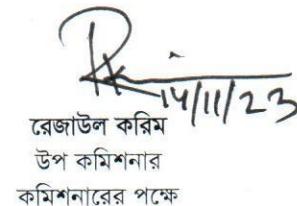 14/11/23
রেজাউল করিম
উপ কমিশনার
কমিশনারের পক্ষে